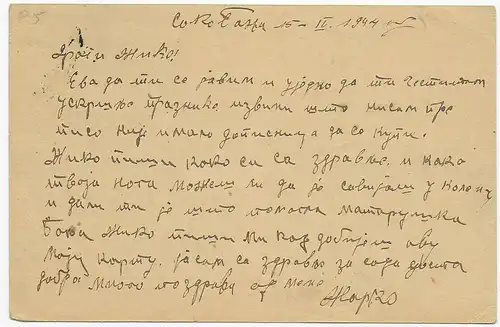 Соко Бања 15-IV. 1944 год
Драги Жико!
Ева да ти се јавим и уједно да ти честитам
ускршње празнике извини што нисам пре
писо није имало дописница да се купи.
Жико пиши како си са здрављем, и како
твоја нога можеш ли да је савијаш у колену
и дали ти је што помогла матарушка
Бања Жико пиши ми кад добијеш ову
моју карту. ја сам са здравље за сада доста
добра много поздрава од мене
Жарко